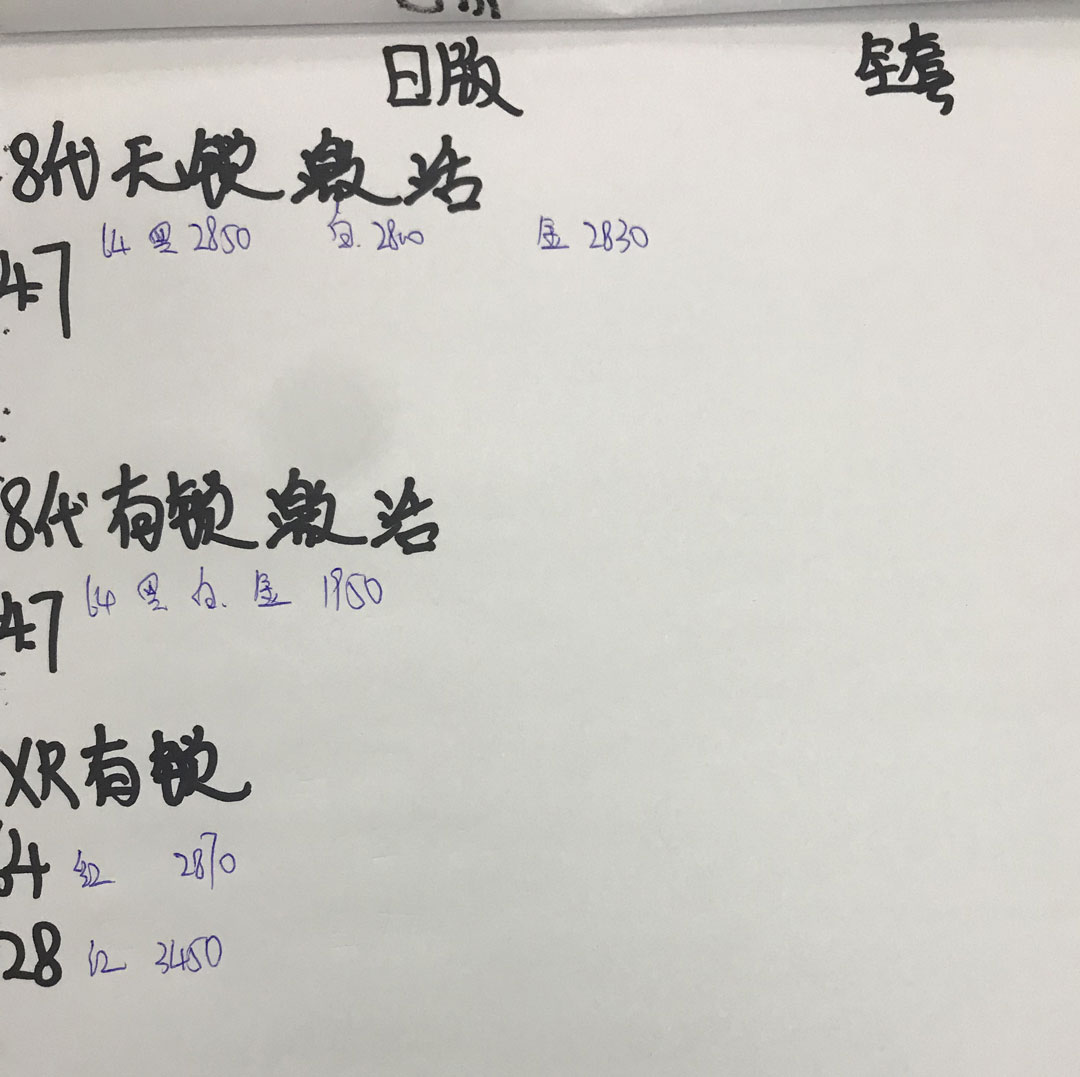 日版 全套
8代无锁激活
4.7 64 黑 2850 白. 2800 金 2830
8代有锁激活
4.7 64 黑 白. 金 1950
XR有锁
64 红 2870
28 红 3450